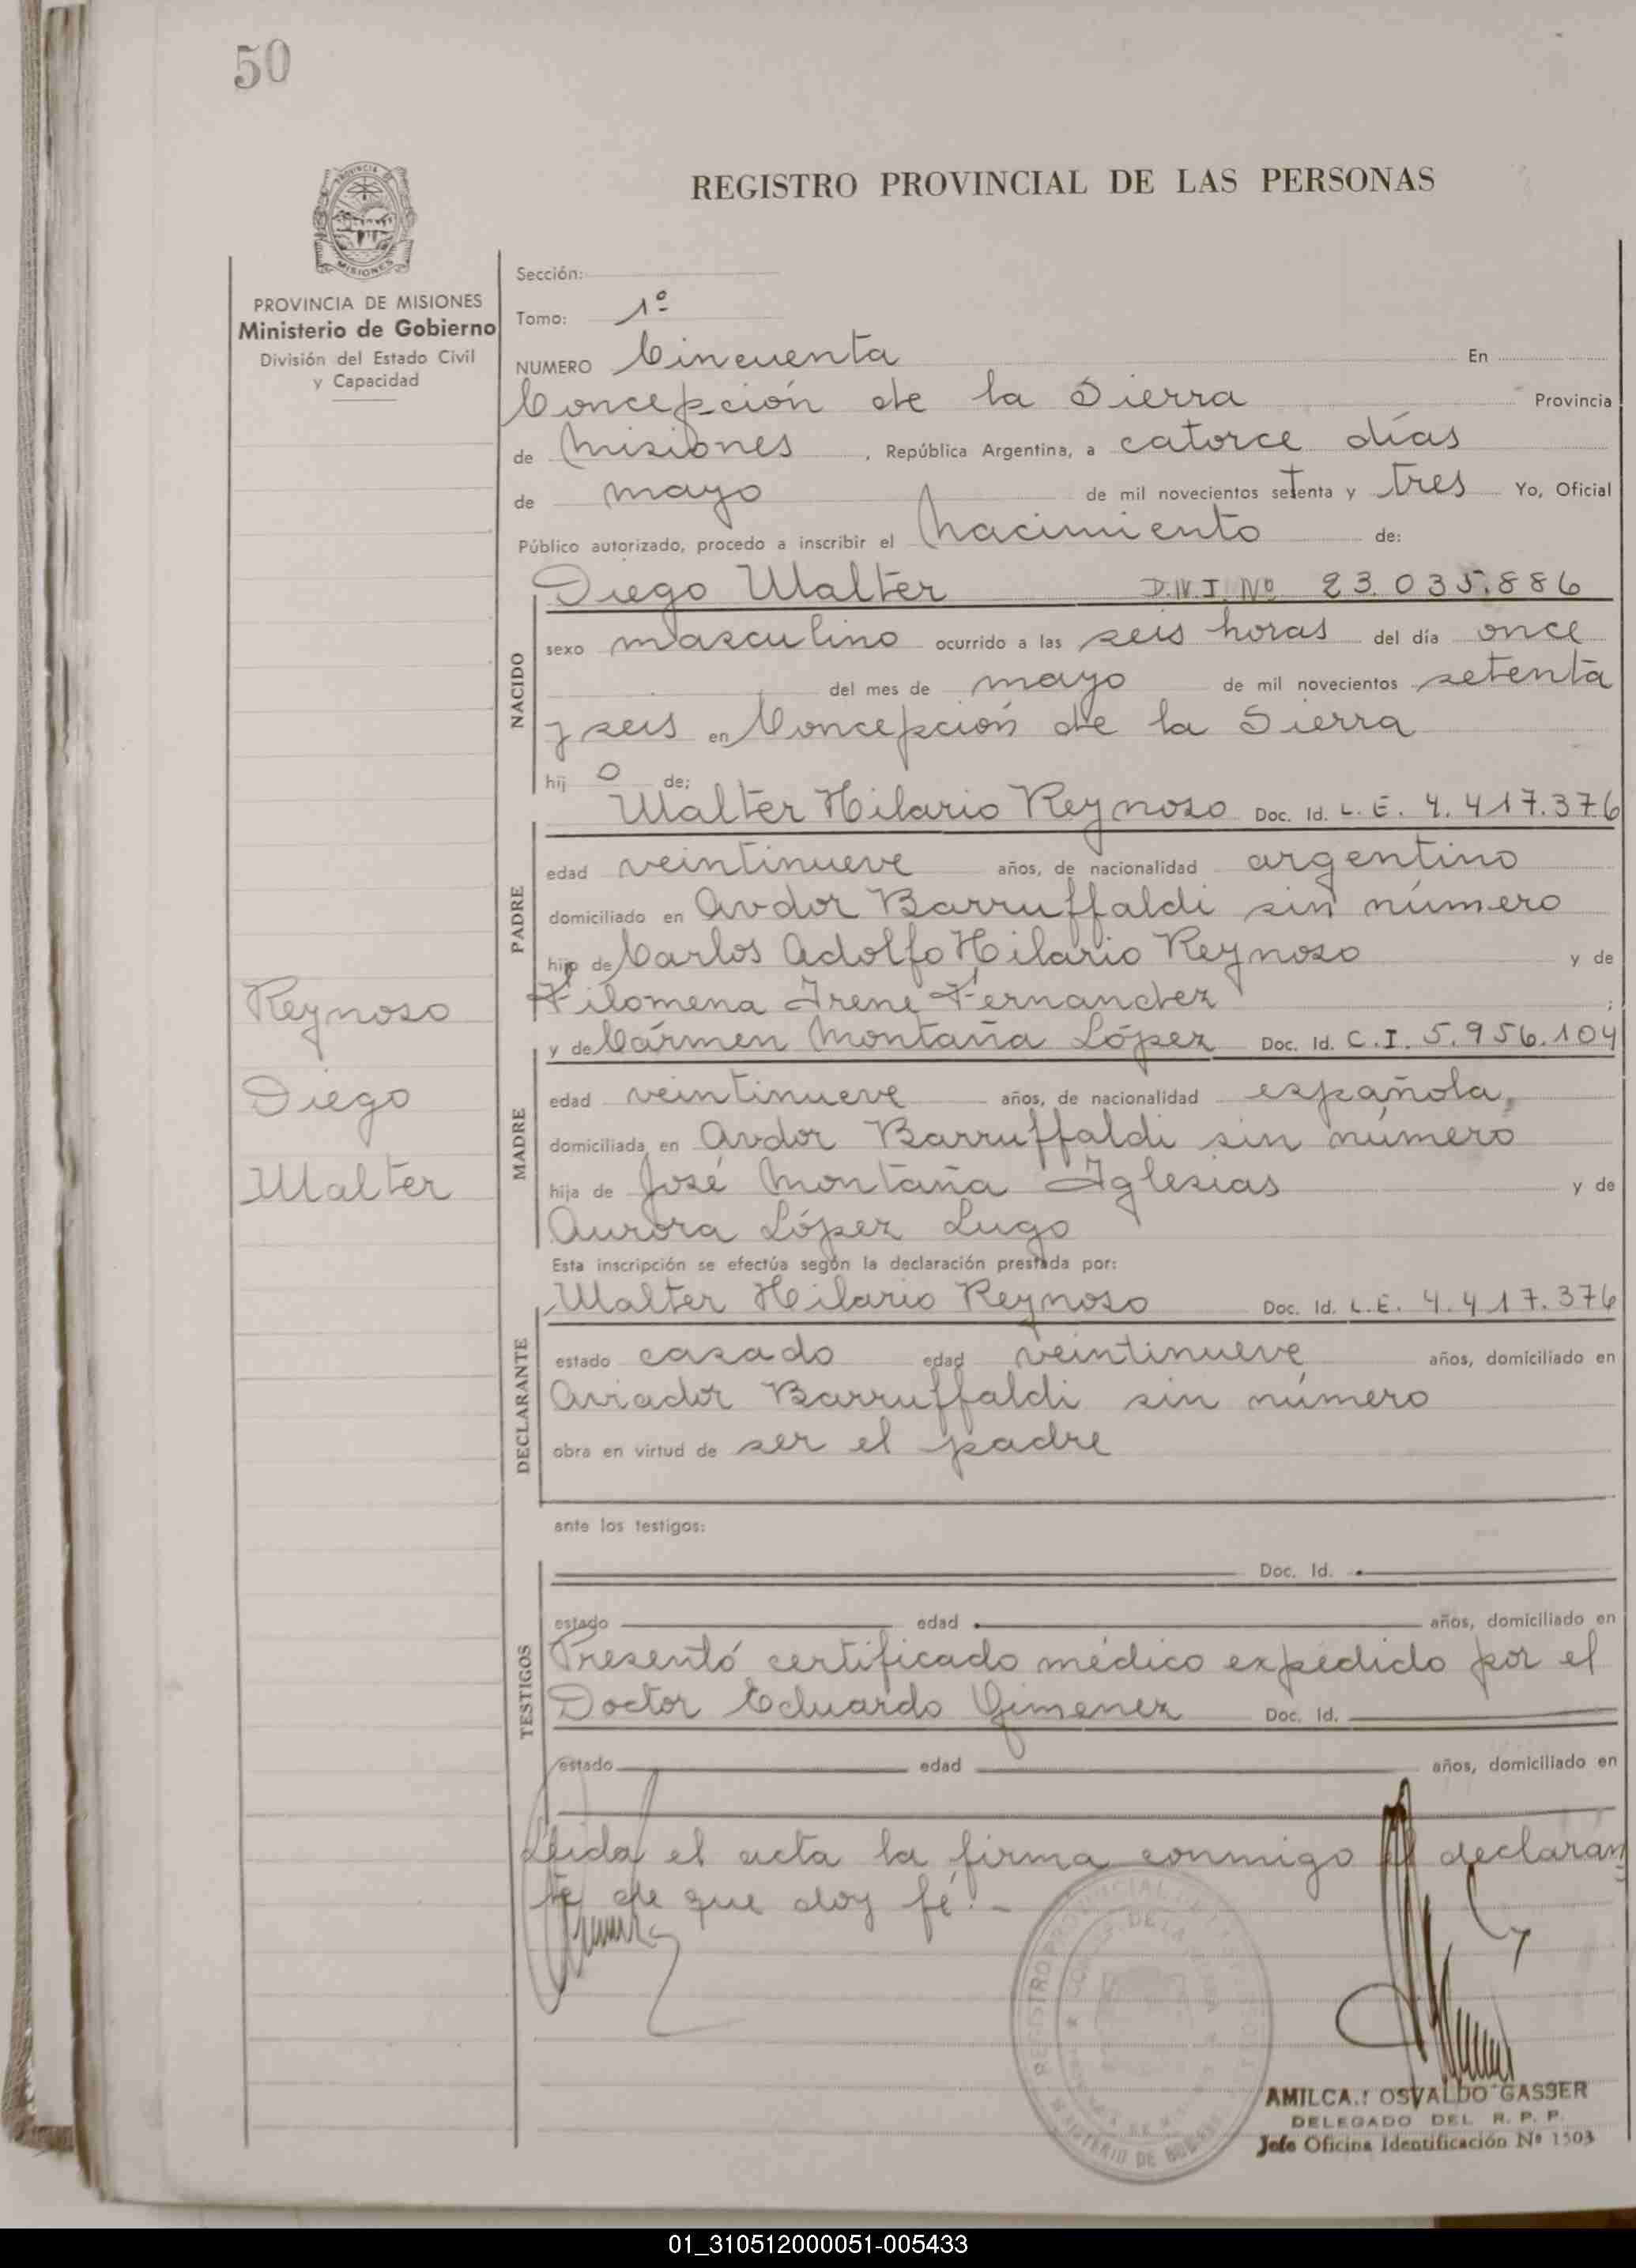 50
REGISTRO PROVINCIAL DE LAS PERSONAS
PROVINCIA DE MISIONES
Ministerio de Gobierno
División del Estado Civil
y Capacidad
Sección:
Tomo: 1º
NUMERO Cincuenta En
Concepción de la Sierra Provincia
de Misiones, República Argentina, a catorce días
de mayo de mil novecientos setenta y tres Yo, Oficial
Público autorizado, procedo a inscribir el Nacimiento de:
NACIDO
Diego Walter D.N.I. Nº 23.035.886
sexo masculino ocurrido a las seis horas del día once
del mes de mayo de mil novecientos setenta
y seis en Concepción de la Sierra
hij o de;
PADRE
Walter Hilario Reynoso Doc. Id. L.E. 4.417.376
edad veintinueve años, de nacionalidad argentino
domiciliado en Avdor Barruffaldi sin número
hijo de Carlos Adolfo Hilario Reynoso y de
Filomena Irene Fernandez ;
MADRE
y de Cármen Montaña López Doc. Id. C.I. 5.956.104
edad veintinueve años, de nacionalidad española,
domiciliada en Avdor Barruffaldi sin número
hija de José Montaña Iglesias y de
Aurora López Lugo
Reynoso
Diego
Walter
Esta inscripción se efectúa según la declaración prestada por:
DECLARANTE
Walter Hilario Reynoso Doc. Id. L.E. 4.417.376
estado casado edad veintinueve años, domiciliado en
Aviador Barruffaldi sin número
obra en virtud de ser el padre
ante los testigos:
TESTIGOS
Doc. Id.
estado edad años, domiciliado en
Presentó certificado médico expedido por el
Doctor Eduardo Gimenez Doc. Id.
estado edad años, domiciliado en
Leida el acta la firma conmigo el declaran
te de que doy fé.-
AMILCA.: OSVALDO GASSER
DELEGADO DEL R. P. P.
Jefe Oficina Identificación Nº 1503
01_310512000051-005433